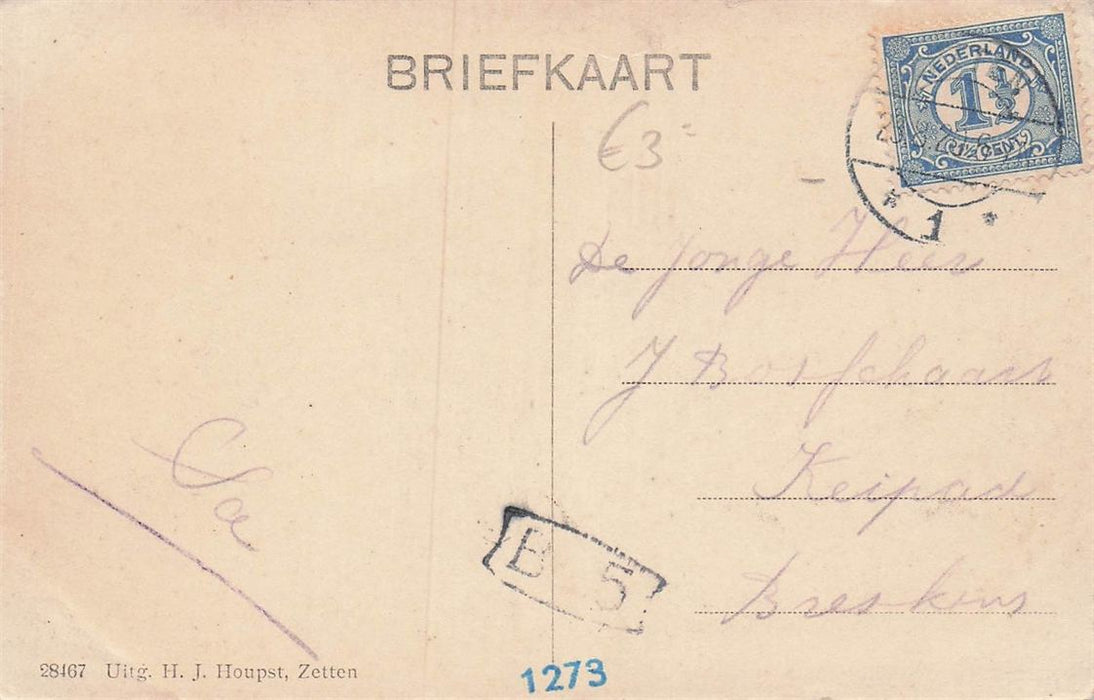 BRIEFKAART
€3
NEDERLAND
1½
1½ CENT
1
De Jonge Heer
J Bosschaart
Keipad
Breskens
B 5
1273
28467 Uitg. H. J. Houpst, Zetten